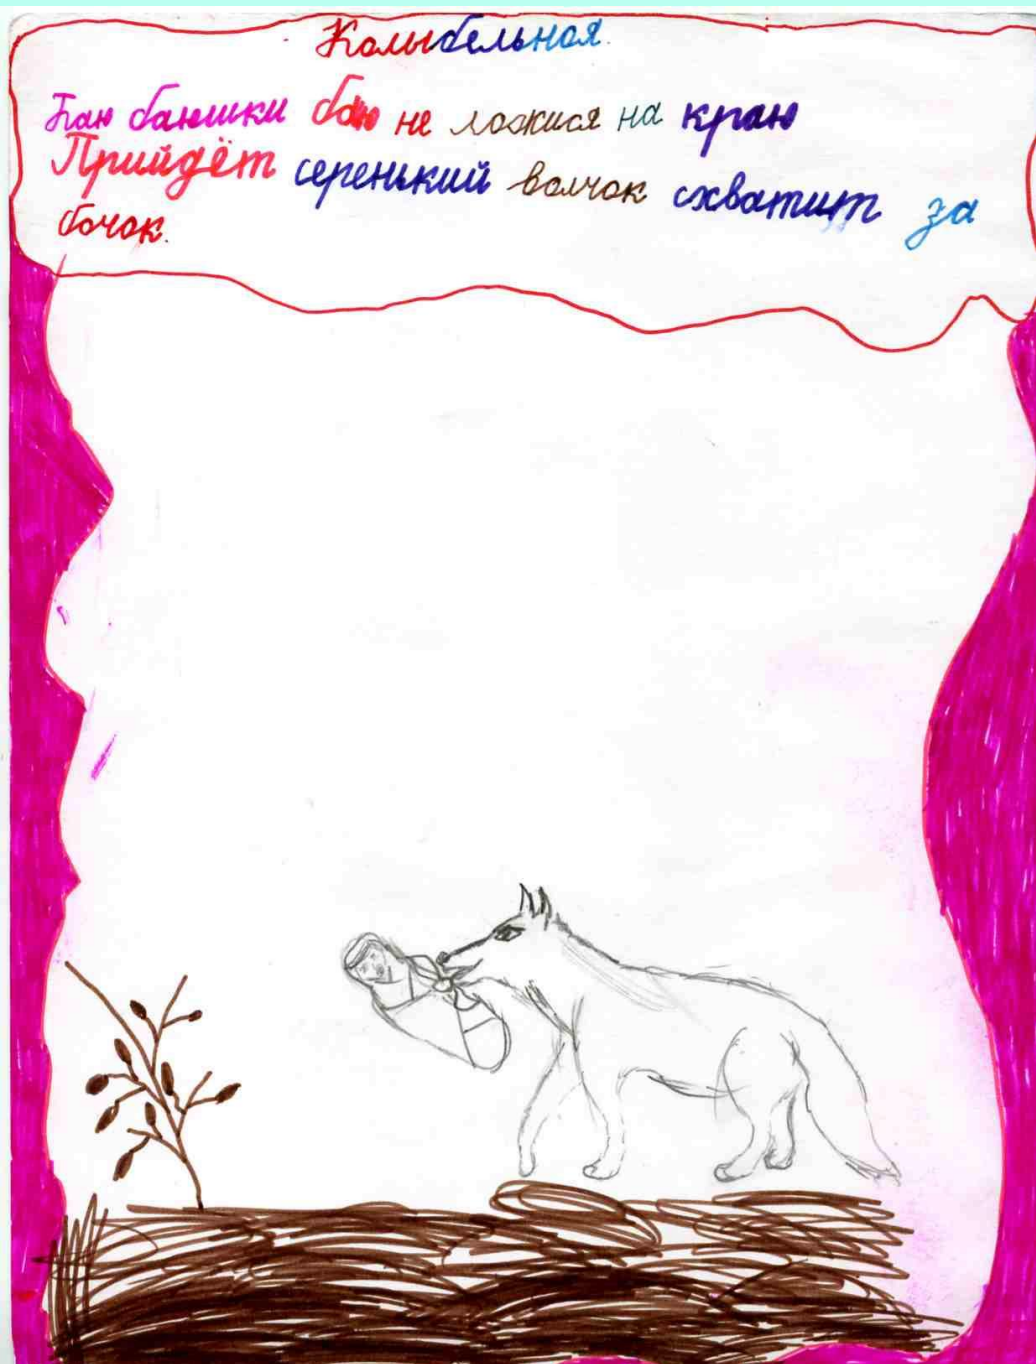 Колыбельная.
Баю баюшки баю не ложися на краю
Прийдёт серенький волчок схватит за
бочок.